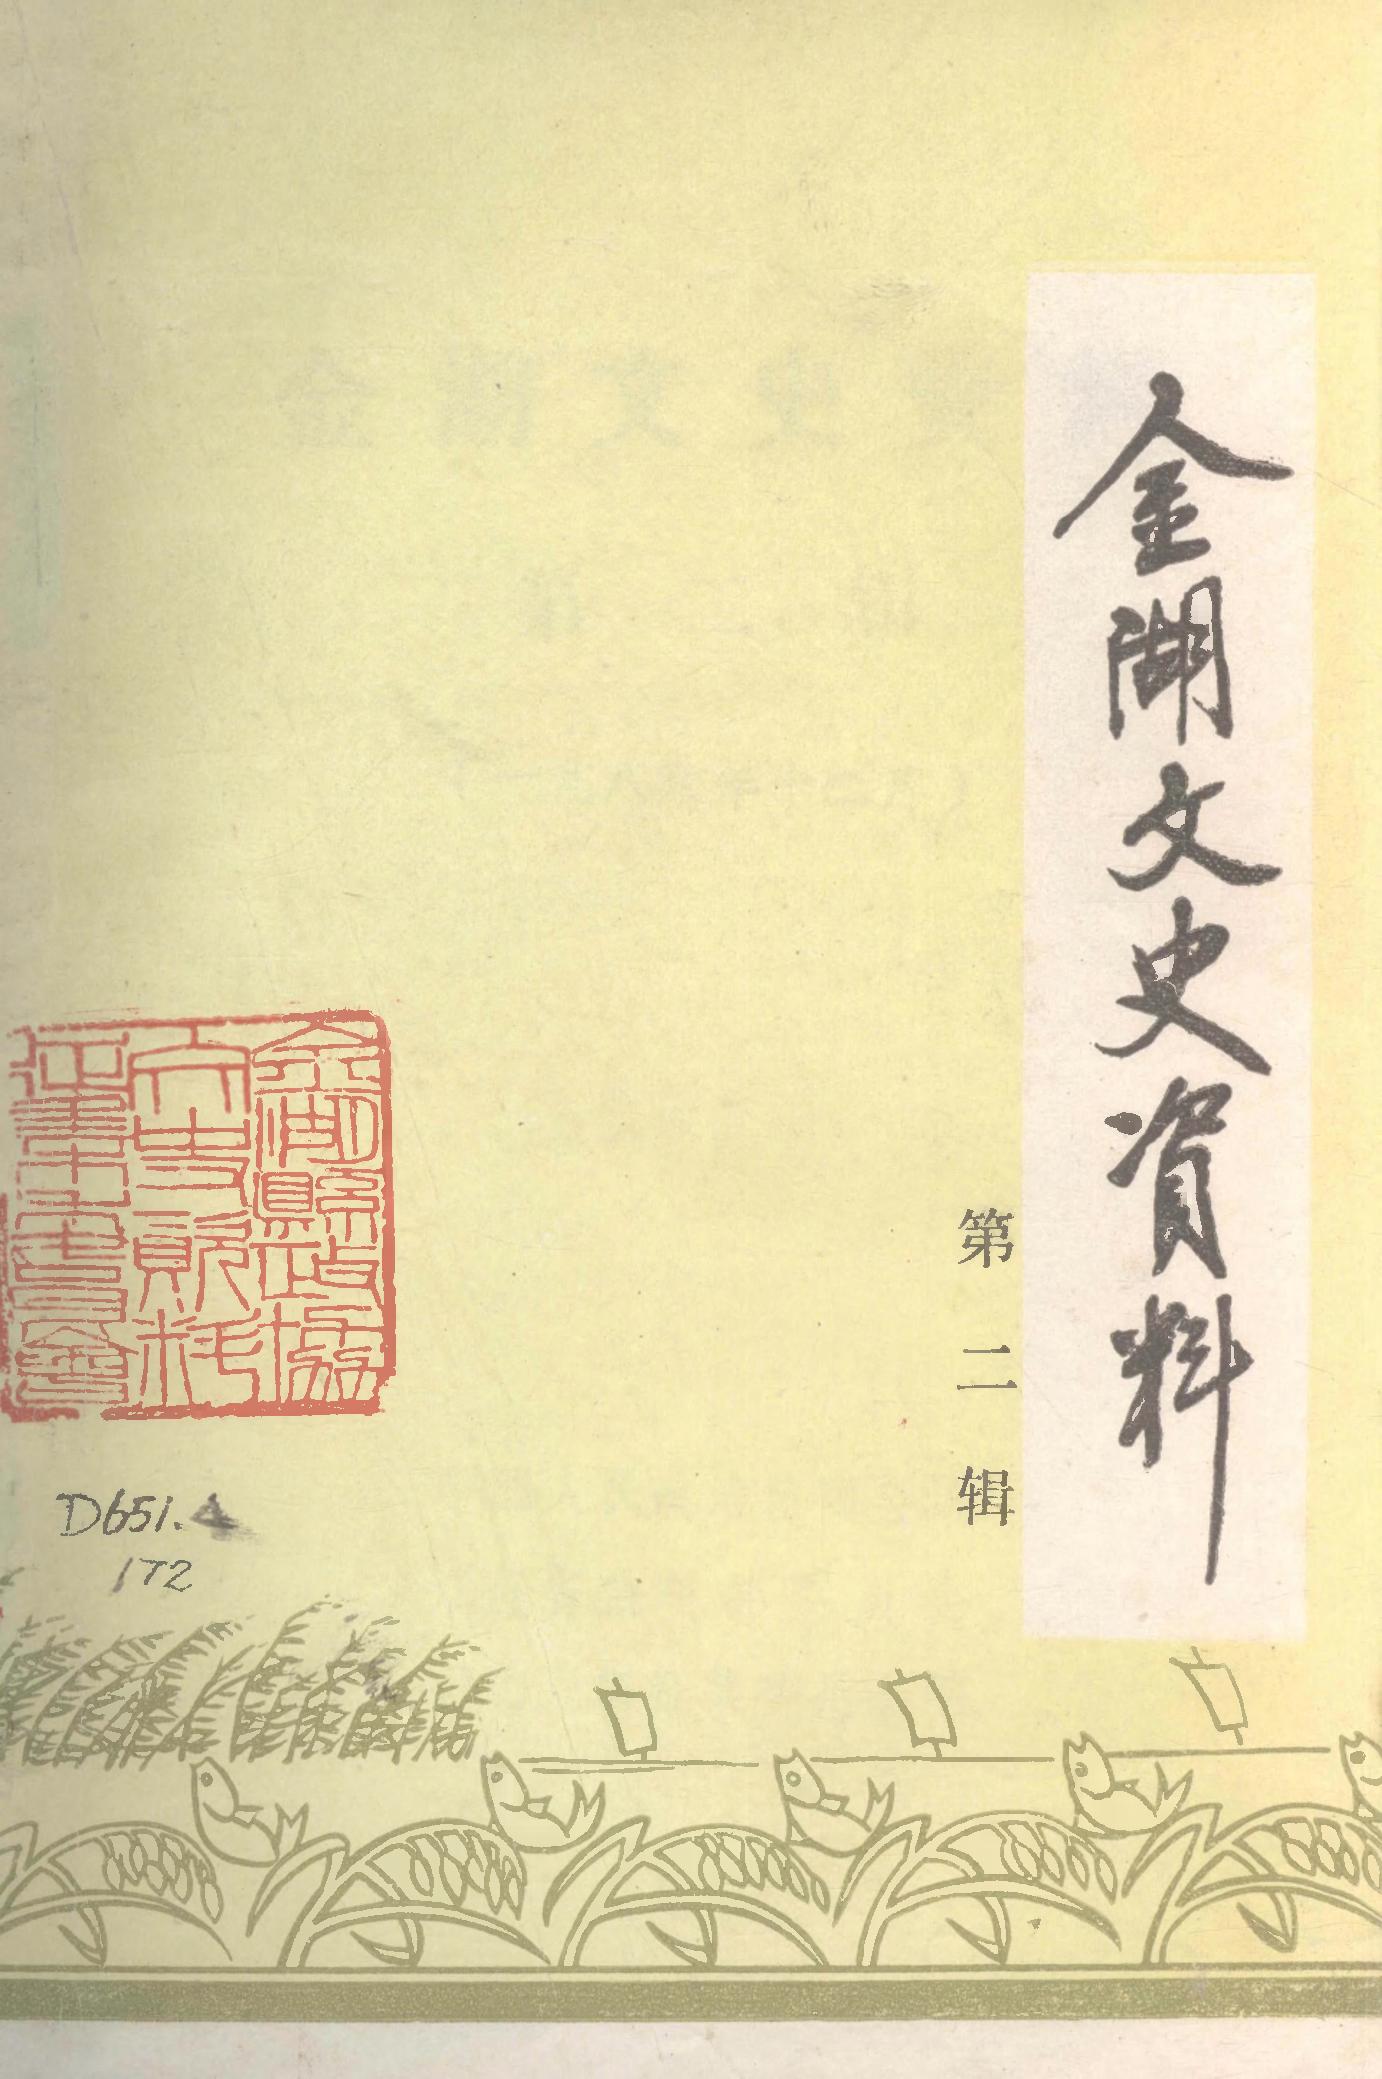 金湖文史资料
第二辑
金湖縣政協
文史資料
委員會
D651.4
172